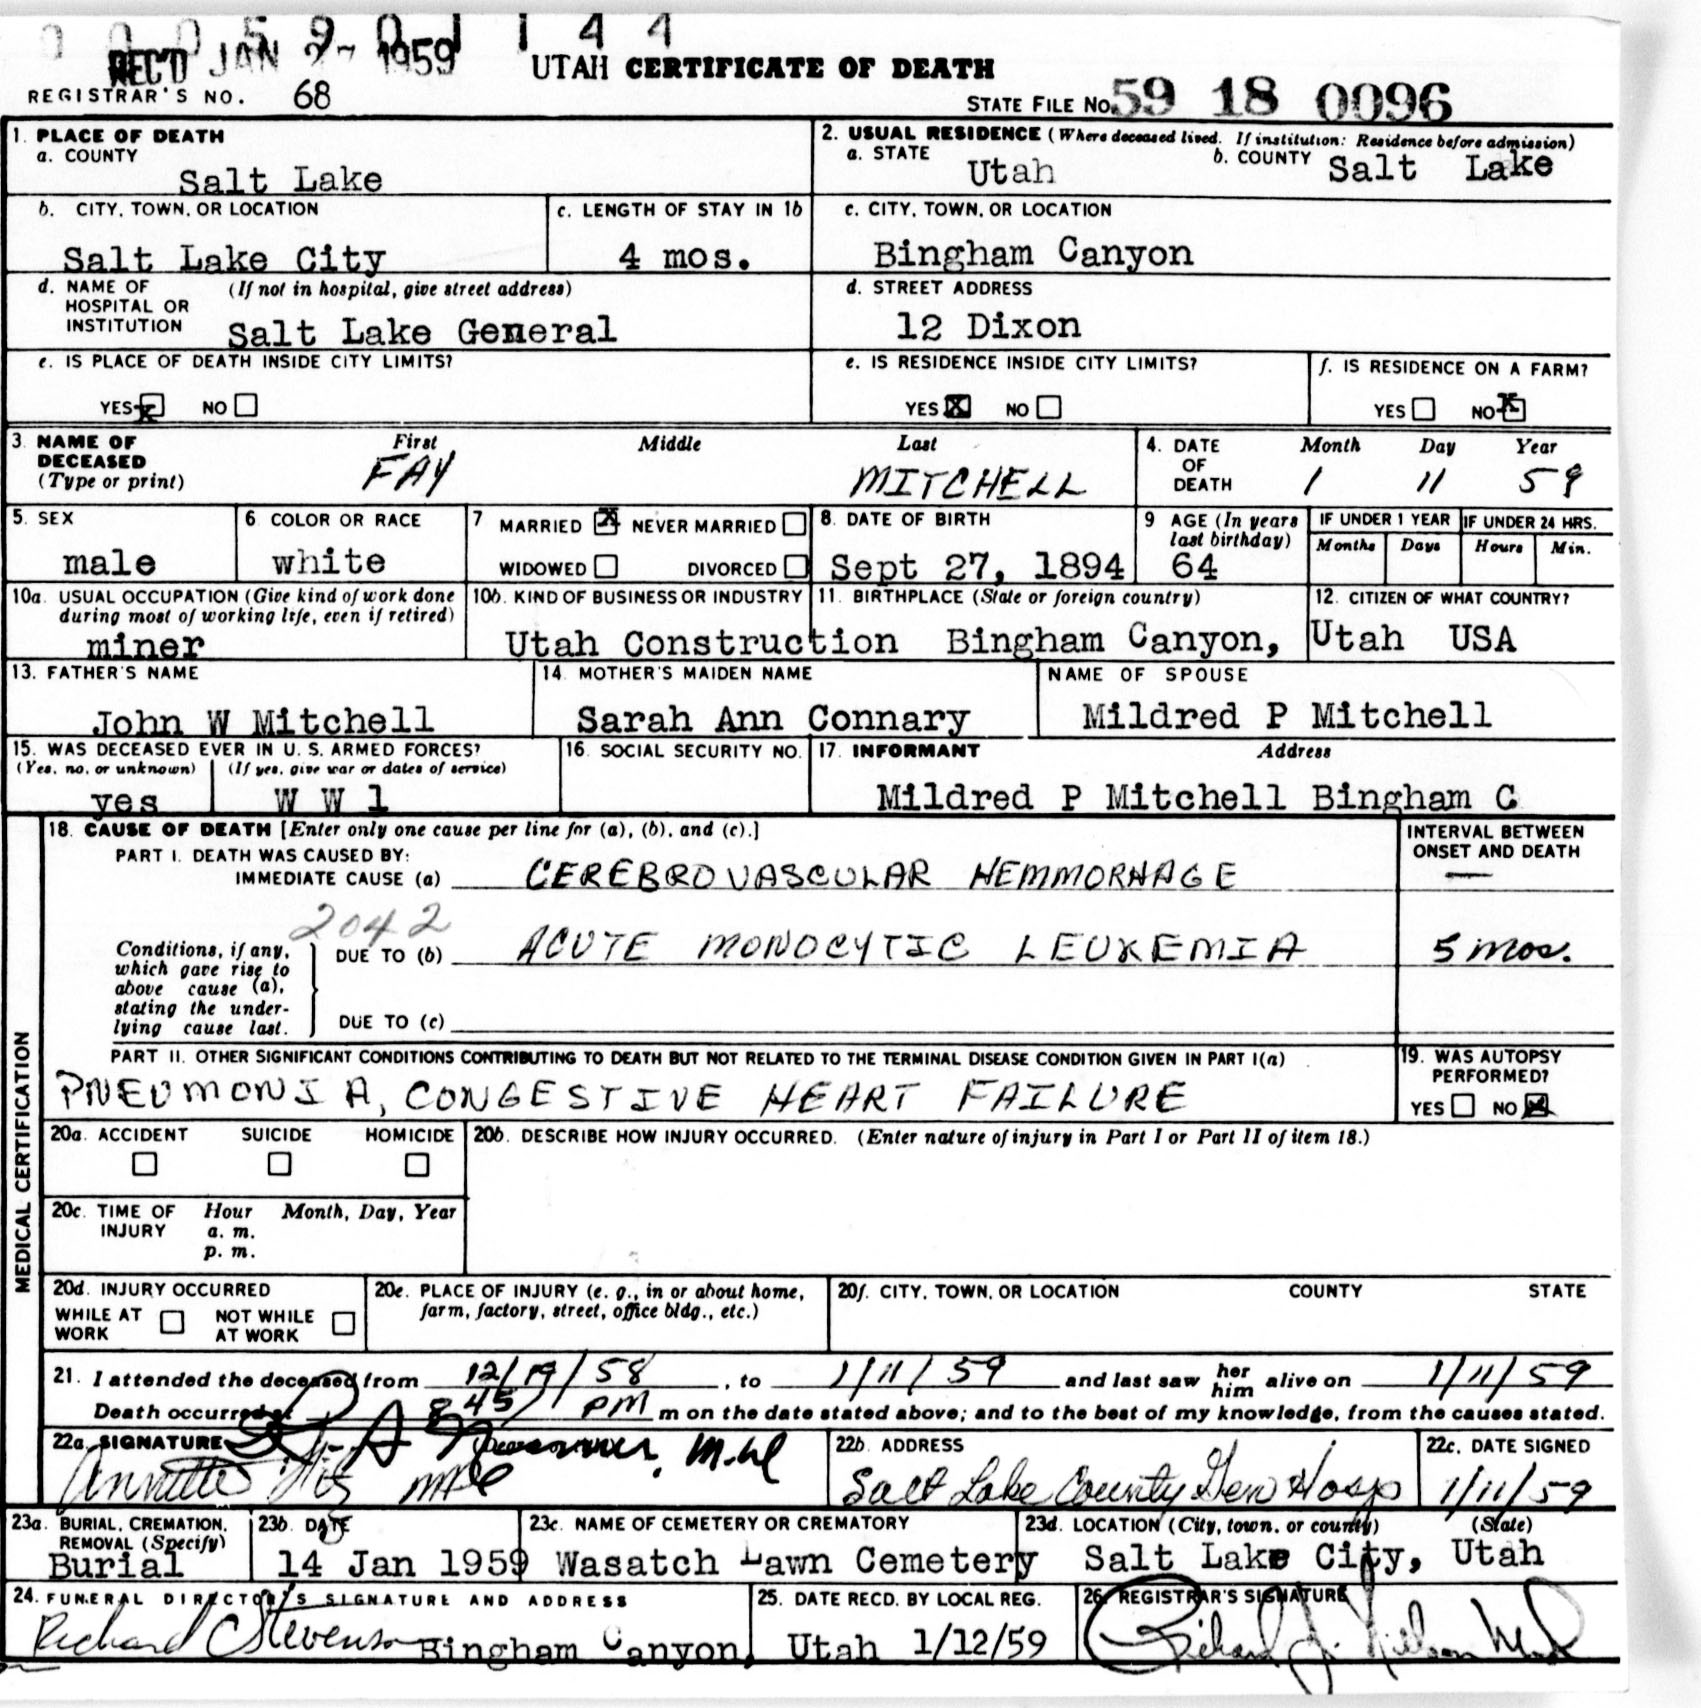 0 0 0 5 9 0 1 1 4 4
REC'D JAN 27 1959
UTAH CERTIFICATE OF DEATH
REGISTRAR'S NO. 68
STATE FILE NO. 59 18 0096
1. PLACE OF DEATH
a. COUNTY
Salt Lake
2. USUAL RESIDENCE (Where deceased lived. If institution: Residence before admission)
a. STATE Utah b. COUNTY Salt Lake
b. CITY, TOWN, OR LOCATION
Salt Lake City
c. LENGTH OF STAY IN 1b
4 mos.
c. CITY, TOWN, OR LOCATION
Bingham Canyon
d. NAME OF HOSPITAL OR INSTITUTION (If not in hospital, give street address)
Salt Lake General
d. STREET ADDRESS
12 Dixon
e. IS PLACE OF DEATH INSIDE CITY LIMITS?
YES x NO
e. IS RESIDENCE INSIDE CITY LIMITS?
YES X NO
f. IS RESIDENCE ON A FARM?
YES NO x
3. NAME OF DECEASED (Type or print)
First Middle Last
FAY MITCHELL
4. DATE OF DEATH
Month Day Year
1 11 59
5. SEX
male
6. COLOR OR RACE
white
7 MARRIED X NEVER MARRIED
WIDOWED DIVORCED
8. DATE OF BIRTH
Sept 27, 1894
9 AGE (In years last birthday)
64
IF UNDER 1 YEAR
Months Days
IF UNDER 24 HRS.
Hours Min.
10a. USUAL OCCUPATION (Give kind of work done during most of working life, even if retired)
miner
10b. KIND OF BUSINESS OR INDUSTRY
Utah Construction
11. BIRTHPLACE (State or foreign country)
Bingham Canyon, Utah
12. CITIZEN OF WHAT COUNTRY?
USA
13. FATHER'S NAME
John W Mitchell
14. MOTHER'S MAIDEN NAME
Sarah Ann Connary
NAME OF SPOUSE
Mildred P Mitchell
15. WAS DECEASED EVER IN U. S. ARMED FORCES?
(Yes, no, or unknown) (If yes, give war or dates of service)
yes W W 1
16. SOCIAL SECURITY NO.
17. INFORMANT Address
Mildred P Mitchell Bingham C
MEDICAL CERTIFICATION
18. CAUSE OF DEATH [Enter only one cause per line for (a), (b), and (c).]
INTERVAL BETWEEN ONSET AND DEATH
PART I. DEATH WAS CAUSED BY:
IMMEDIATE CAUSE (a) CEREBROVASCULAR HEMMORHAGE —
2042
Conditions, if any, which gave rise to above cause (a), stating the underlying cause last.
DUE TO (b) ACUTE MONOCYTIC LEUKEMIA 5 mos.
DUE TO (c)
PART II. OTHER SIGNIFICANT CONDITIONS CONTRIBUTING TO DEATH BUT NOT RELATED TO THE TERMINAL DISEASE CONDITION GIVEN IN PART I(a)
PNEUMONIA, CONGESTIVE HEART FAILURE
19. WAS AUTOPSY PERFORMED?
YES NO X
20a. ACCIDENT SUICIDE HOMICIDE
20b. DESCRIBE HOW INJURY OCCURRED. (Enter nature of injury in Part I or Part II of item 18.)
20c. TIME OF INJURY Hour Month, Day, Year
a. m.
p. m.
20d. INJURY OCCURRED
WHILE AT WORK NOT WHILE AT WORK
20e. PLACE OF INJURY (e. g., in or about home, farm, factory, street, office bldg., etc.)
20f. CITY, TOWN, OR LOCATION COUNTY STATE
21. I attended the deceased from 12/19/58, to 1/11/59 and last saw her him alive on 1/11/59
Death occurred at 8 45 PM m on the date stated above; and to the best of my knowledge, from the causes stated.
22a. SIGNATURE
M.D.
Annette MD
22b. ADDRESS
Salt Lake County Gen Hosp
22c. DATE SIGNED
1/11/59
23a. BURIAL, CREMATION, REMOVAL (Specify)
Burial
23b. DATE
14 Jan 1959
23c. NAME OF CEMETERY OR CREMATORY
Wasatch Lawn Cemetery
23d. LOCATION (City, town, or county) (State)
Salt Lake City, Utah
24. FUNERAL DIRECTOR'S SIGNATURE AND ADDRESS
Richard C Stevenson Bingham Canyon, Utah
25. DATE RECD. BY LOCAL REG.
1/12/59
26. REGISTRAR'S SIGNATURE
Richard J. Nielson M.D.